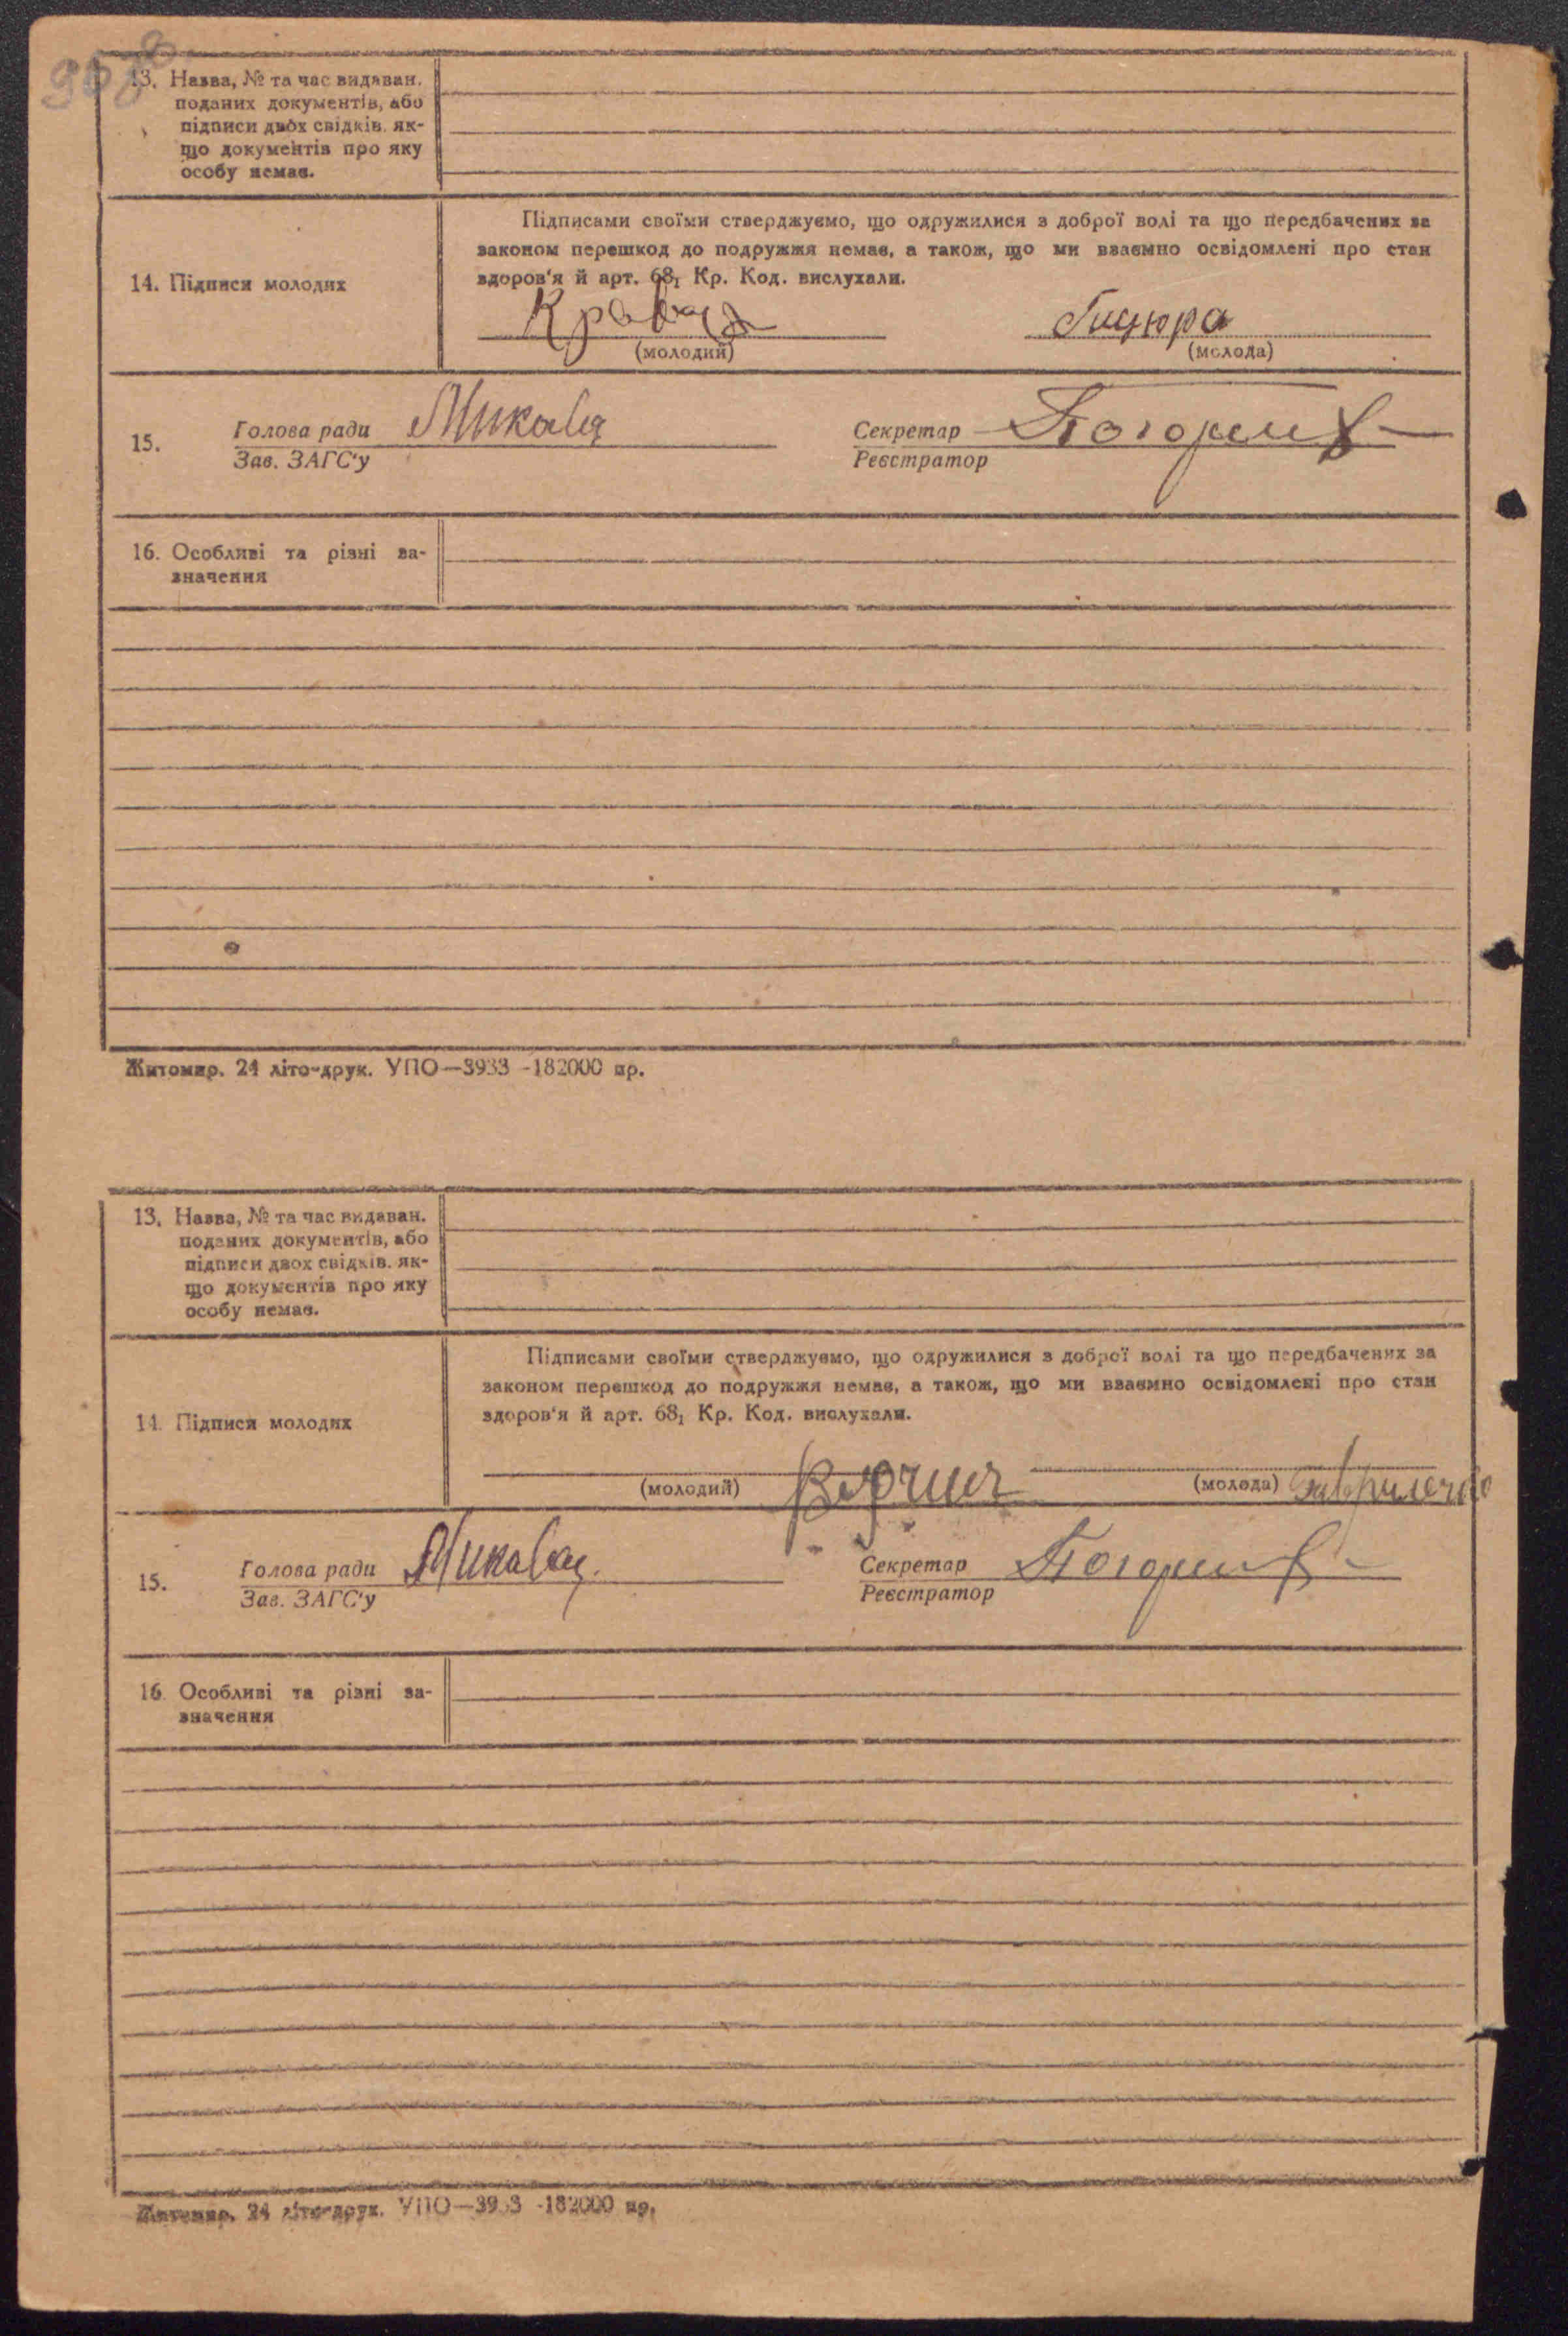 13. Назва, № та час видаван.
поданих документів, або
підписи двох свідків. як-
що документів про яку
особу немає.
Підписами своїми стверджуємо, що одружилися з доброї волі та що передбачених за
законом перешкод до подружжя немає, а також, що ми взаємно освідомлені про стан
здоров'я й арт. 68₁ Кр. Код. вислухали.
14. Підписи молодих
Гицюра
(молодий) (молода)
15. Голова ради Секретар
Зав. ЗАГС'у Реєстратор
16. Особливі та різні за-
значення
Житомир. 24 літо-друк. УПО—3933 -182000 пр.
13. Назва, № та час видаван.
поданих документів, або
підписи двох свідків. як-
що документів про яку
особу немає.
Підписами своїми стверджуємо, що одружилися з доброї волі та що передбачених за
законом перешкод до подружжя немає, а також, що ми взаємно освідомлені про стан
здоров'я й арт. 68₁ Кр. Код. вислухали.
14. Підписи молодих
(молодий) (молода)
15. Голова ради Секретар
Зав. ЗАГС'у Реєстратор
16. Особливі та різні за-
значення
Житомир. 24 літо-друк. УПО—3933 -182000 пр.